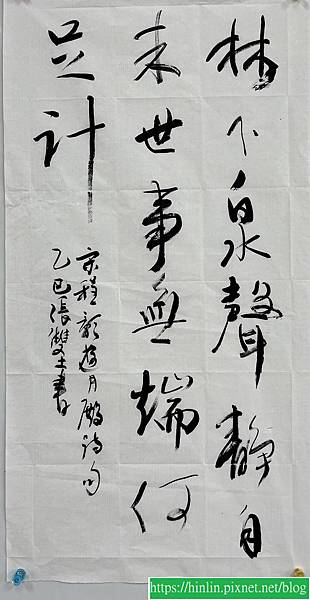 林下泉聲靜自
来世事無端何
足計
宋程顥遊月陂詩句
乙巳張雙書
https://hinlin.pixnet.net/blog